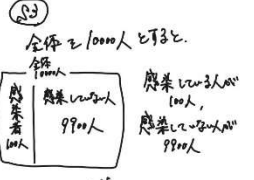 全体を10000人とすると.
全体
10000人
感染者
100人
感染していない人
9900人
感染している人が
100人,
感染していない人が
9900人